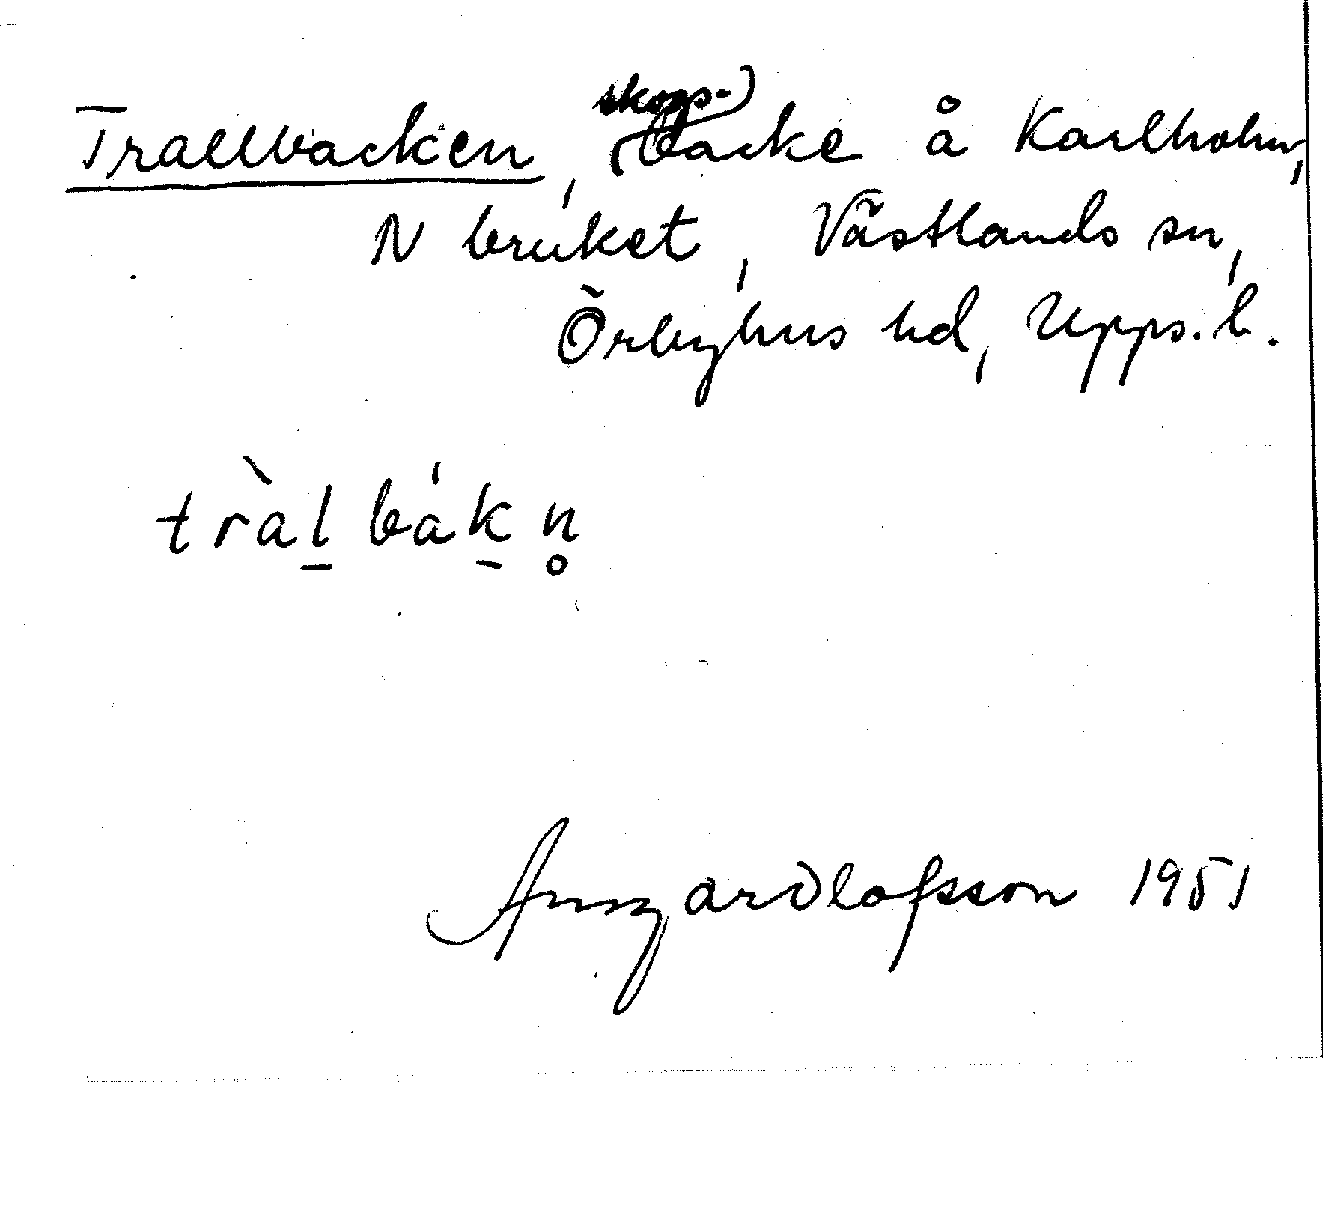 Trallbacken, (skogs-)backe å Karlholm,
N bruket, Västlands sn,
Örbyhus hd, Upps. l.
tràl̠bák̠n̥
Ansgar Olofsson 1951